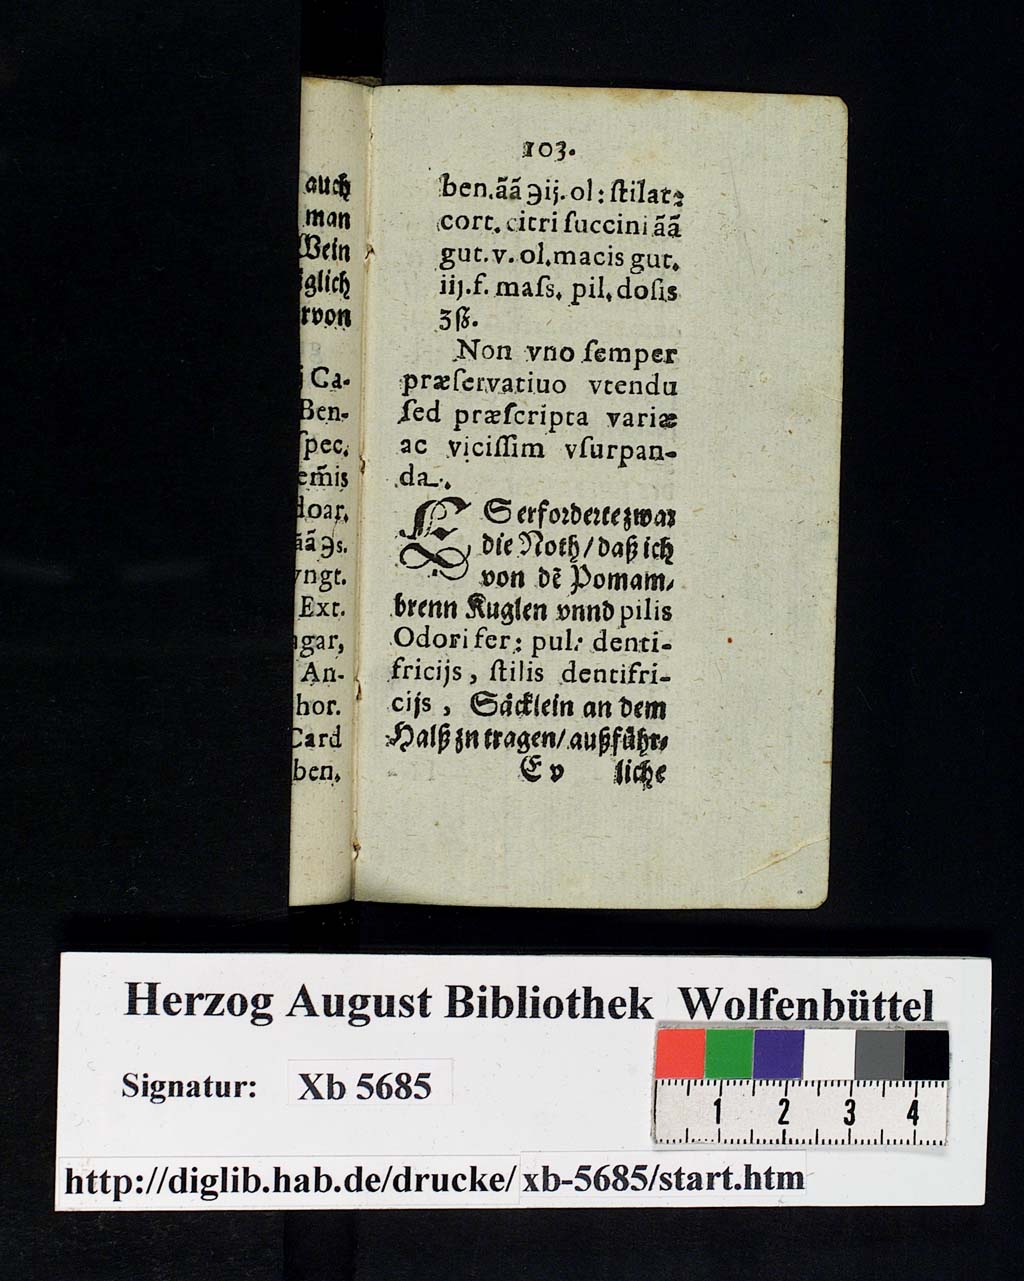 auch
man
Wein
glich
rvon
Ca-
Ben-
spec.
em̃is
doar.
ãã ℈s.
vngt.
Ext.
agar,
An-
hor.
Card
ben.
103.
ben. ãã ℈ij. ol: ſtilat:
cort. citri ſuccini ãã
gut. v. ol. macis gut.
iij. f. maſs. pil. doſis
ʒß.
Non vno ſemper
præſervatiuo vtendu
ſed præſcripta variæ
ac viciſſim vſurpan-
da.
ES erforderte zwar
die Noth / daß ich
von dē Pomam-
brenn Kuglen vnnd pilis
Odorifer: pul: denti-
fricijs, ſtilis dentifri-
cijs, Säcklein an dem
Halß zn tragen / außführ-
E v liche
Herzog August Bibliothek Wolfenbüttel
Signatur: Xb 5685
1 2 3 4
http://diglib.hab.de/drucke/xb-5685/start.htm